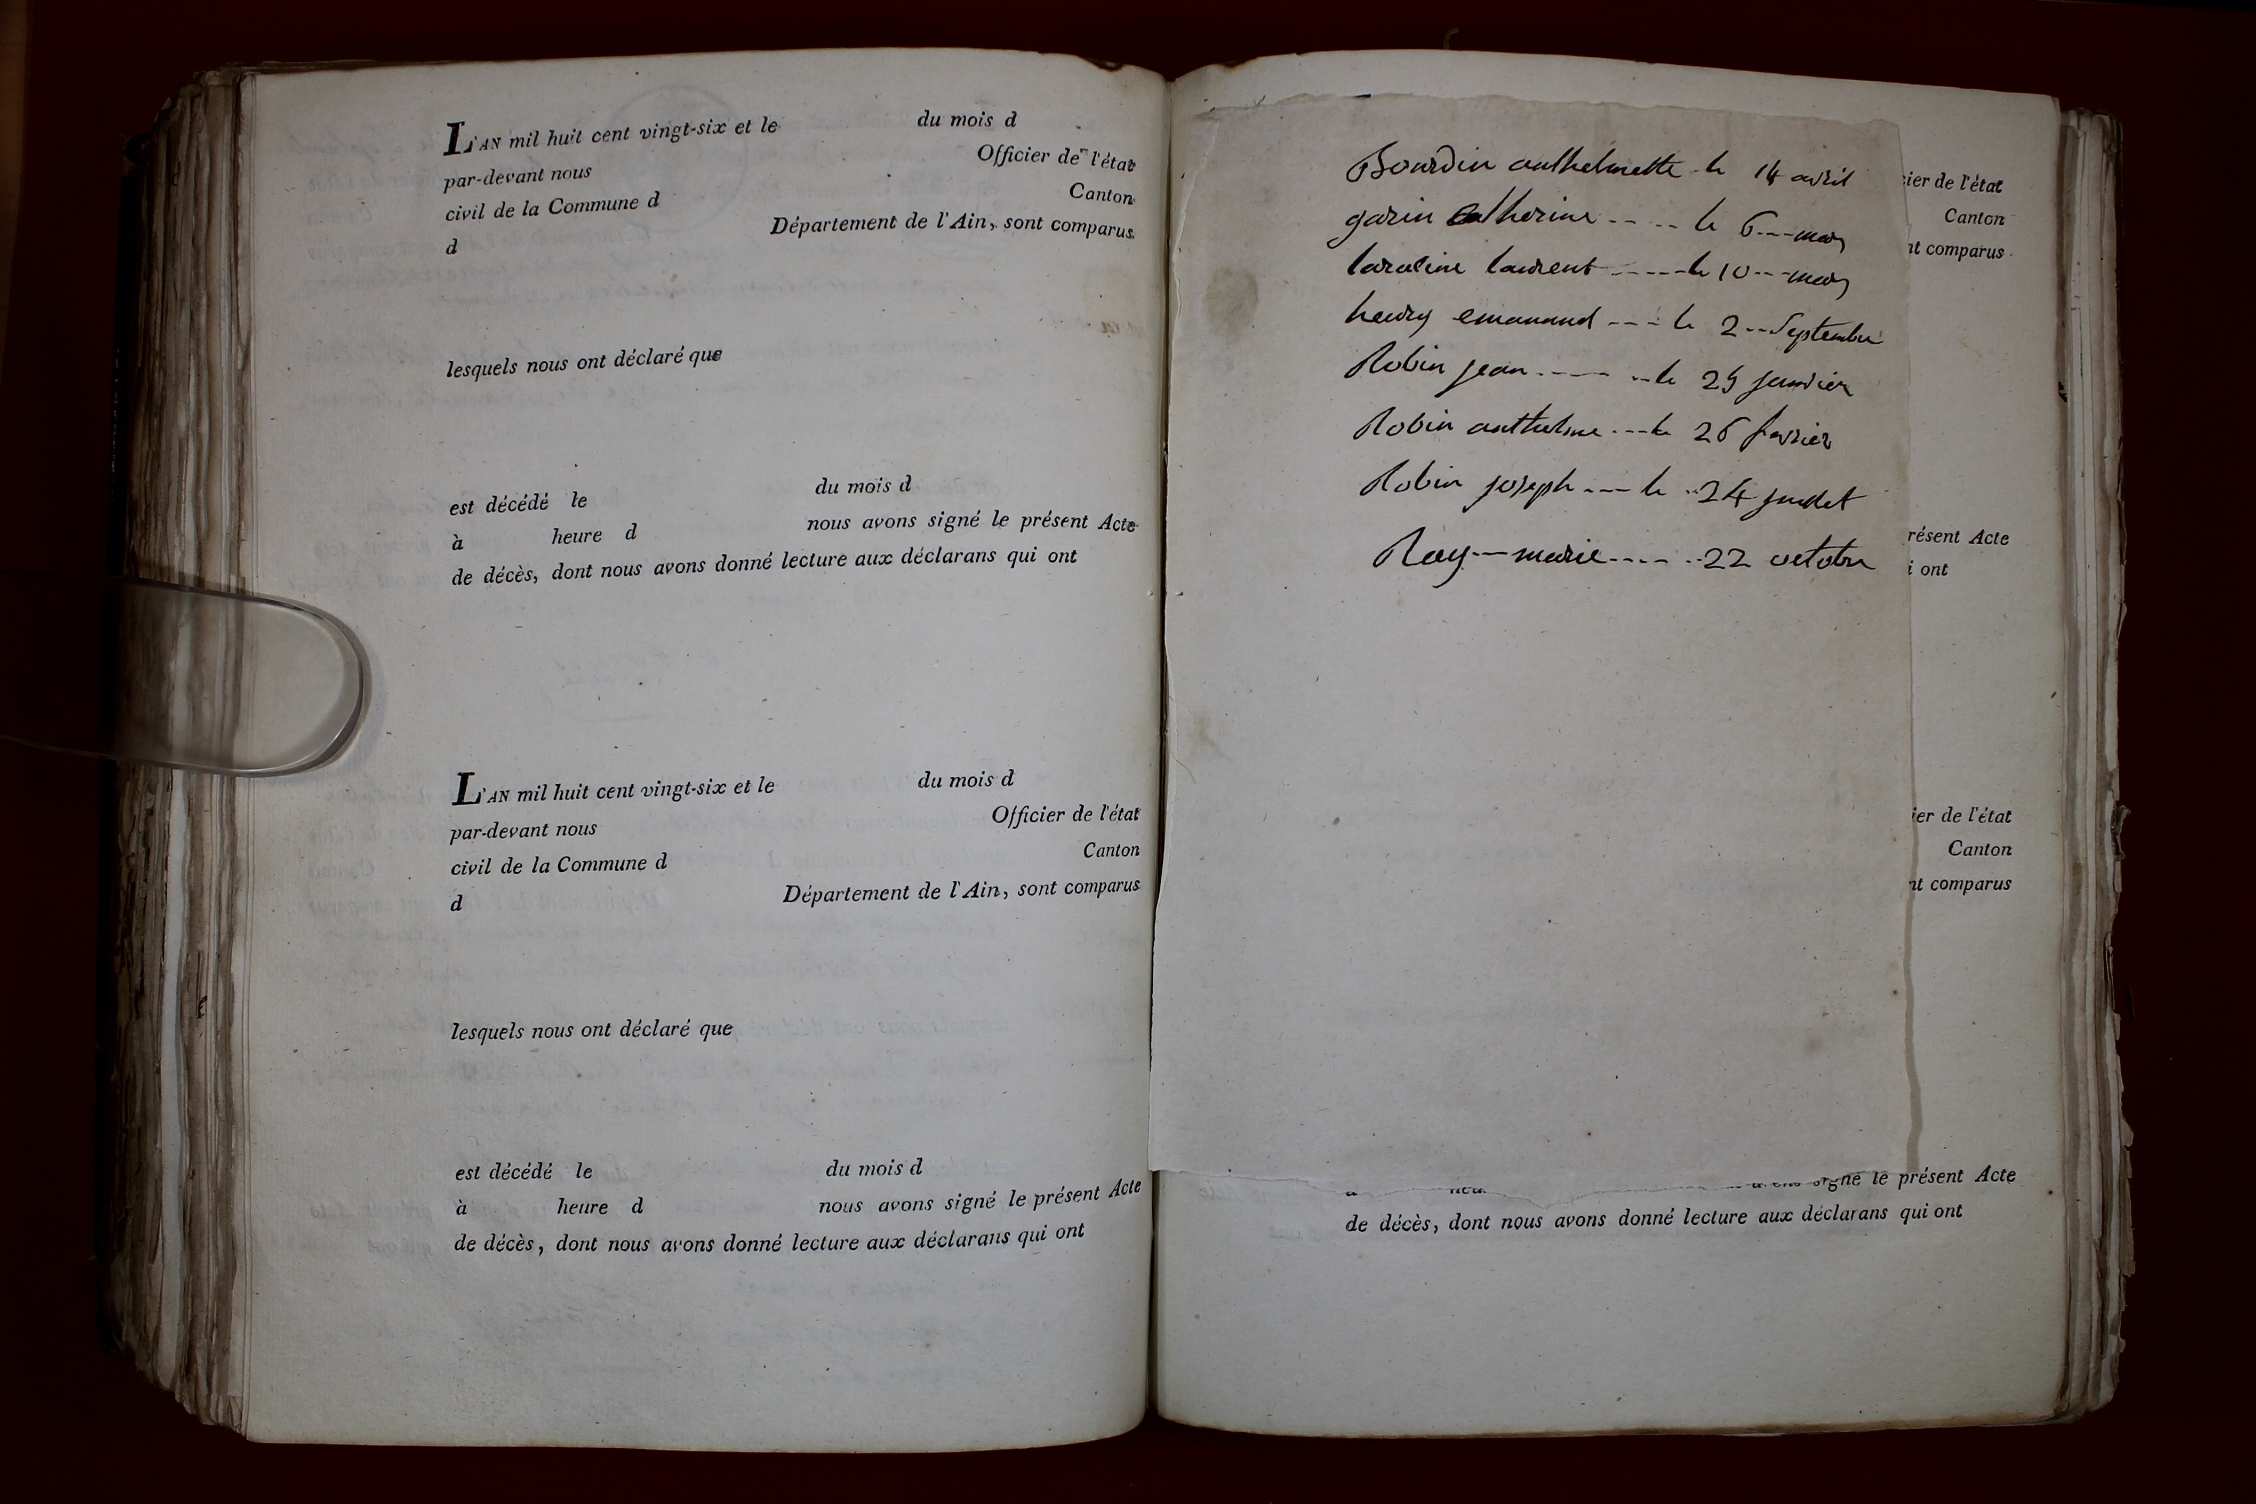 L'AN mil huit cent vingt-six et le du mois d
par-devant nous Officier de l'état
civil de la Commune d Canton
d Département de l'Ain, sont comparus
lesquels nous ont déclaré que
est décédé le du mois d
à heure d nous avons signé le présent Acte
de décès, dont nous avons donné lecture aux déclarans qui ont
L'AN mil huit cent vingt-six et le du mois d
par-devant nous Officier de l'état
civil de la Commune d Canton
d Département de l'Ain, sont comparus
lesquels nous ont déclaré que
est décédé le du mois d
à heure d nous avons signé le présent Acte
de décès, dont nous avons donné lecture aux déclarans qui ont
Bourdin anthelmette le 14 avril
garin Catherine ----- le 6 --- mars
laurent ----- le 10 --- mars
henry emanand --- le 2 -- Septembre
Robin jean ----- le 25 janvier
Robin anthelme --- le 26 fevrier
Robin joseph --- le 24 juillet
Ray -- marie ---- 22 octobre
cier de l'état
Canton
nt comparus
résent Acte
i ont
ier de l'état
Canton
nt comparus
signé le présent Acte
de décès, dont nous avons donné lecture aux déclarans qui ont